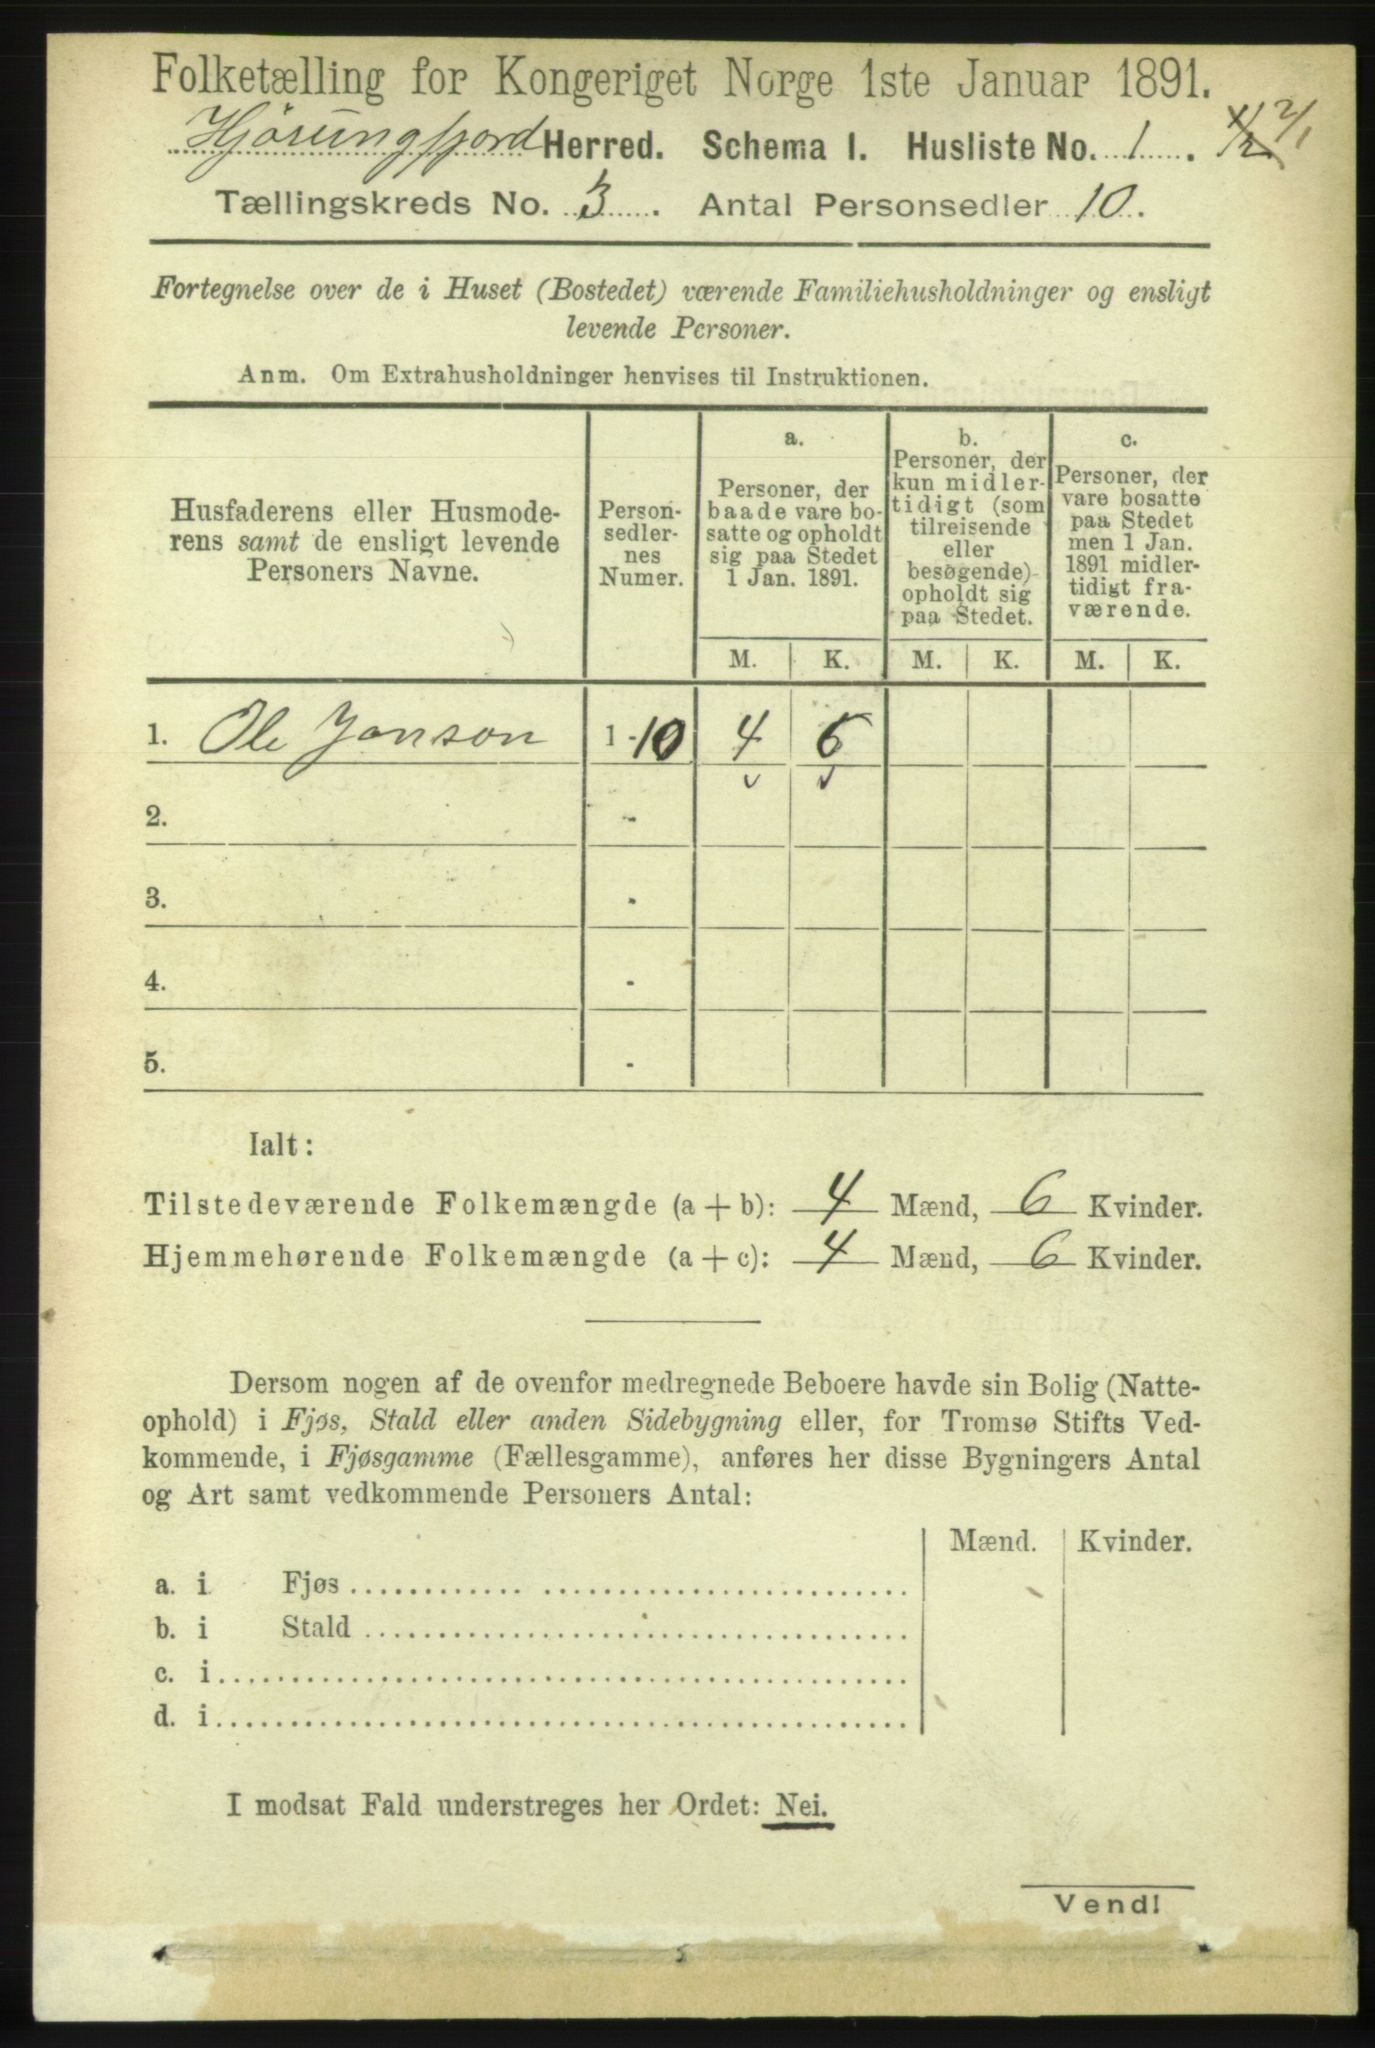 Folketælling for Kongeriget Norge 1ste Januar 1891.
Hjørungfjord Herred. Schema I. Husliste No. 1. 2/1
Tællingskreds No. 3. Antal Personsedler 10.
Fortegnelse over de i Huset (Bostedet) værende Familiehusholdninger og ensligt
levende Personer.
Anm. Om Extrahusholdninger henvises til Instruktionen.
Husfaderens eller Husmode-
rens samt de ensligt levende
Personers Navne.
Person-
sedler-
nes
Numer.
a.
Personer, der
baade vare bo-
satte og opholdt
sig paa Stedet
1 Jan. 1891.
b.
Personer, der
kun midler-
tidigt (som
tilreisende
eller
besøgende)
opholdt sig
paa Stedet.
c.
Personer, der
vare bosatte
paa Stedet
men 1 Jan.
1891 midler-
tidigt fra-
værende.
M. K. M. K. M. K.
1. Ole Janson 1 - 10 4 6
2. -
3. -
4. -
5. -
Ialt:
Tilstedeværende Folkemængde (a + b): 4 Mænd, 6 Kvinder.
Hjemmehørende Folkemængde (a + c): 4 Mænd, 6 Kvinder.
Dersom nogen af de ovenfor medregnede Beboere havde sin Bolig (Natte-
ophold) i Fjøs, Stald eller anden Sidebygning eller, for Tromsø Stifts Ved-
kommende, i Fjøsgamme (Fællesgamme), anføres her disse Bygningers Antal
og Art samt vedkommende Personers Antal:
Mænd. Kvinder.
a. i Fjøs
b. i Stald
c. i
d. i
I modsat Fald understreges her Ordet: Nei.
Vend!